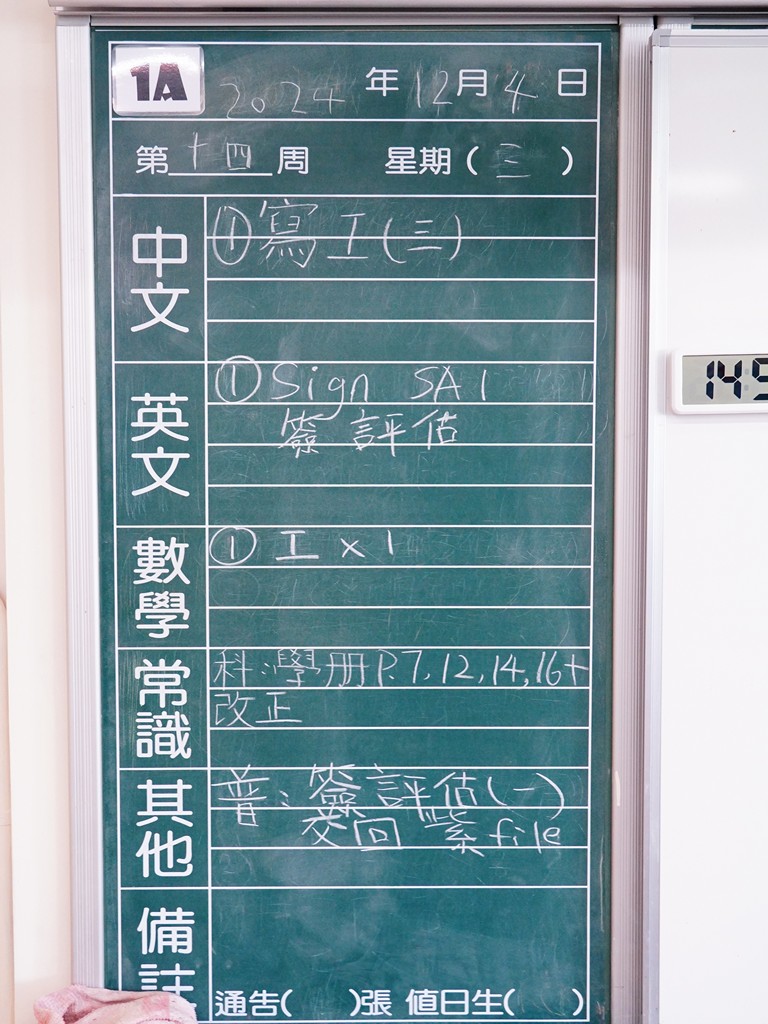 1A 2024 年 12 月 4 日
第 十四 周 星期 ( 三 )
中文
① 寫工(三)
英文
① Sign SA1
簽評估
數學
① 工 x 1
常識
科:學册P.7,12,14,16+
改正
其他
普:簽評估(一)
交回 紫file
備註
通告( )張 值日生( )
14:5